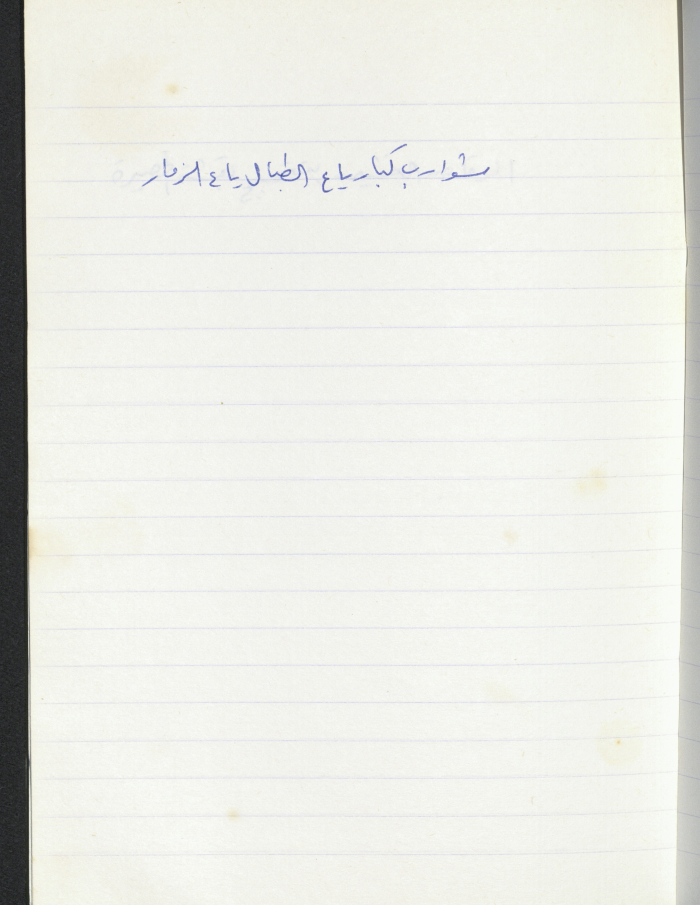 شوارب كبار ياع الطبال ياع الزمار